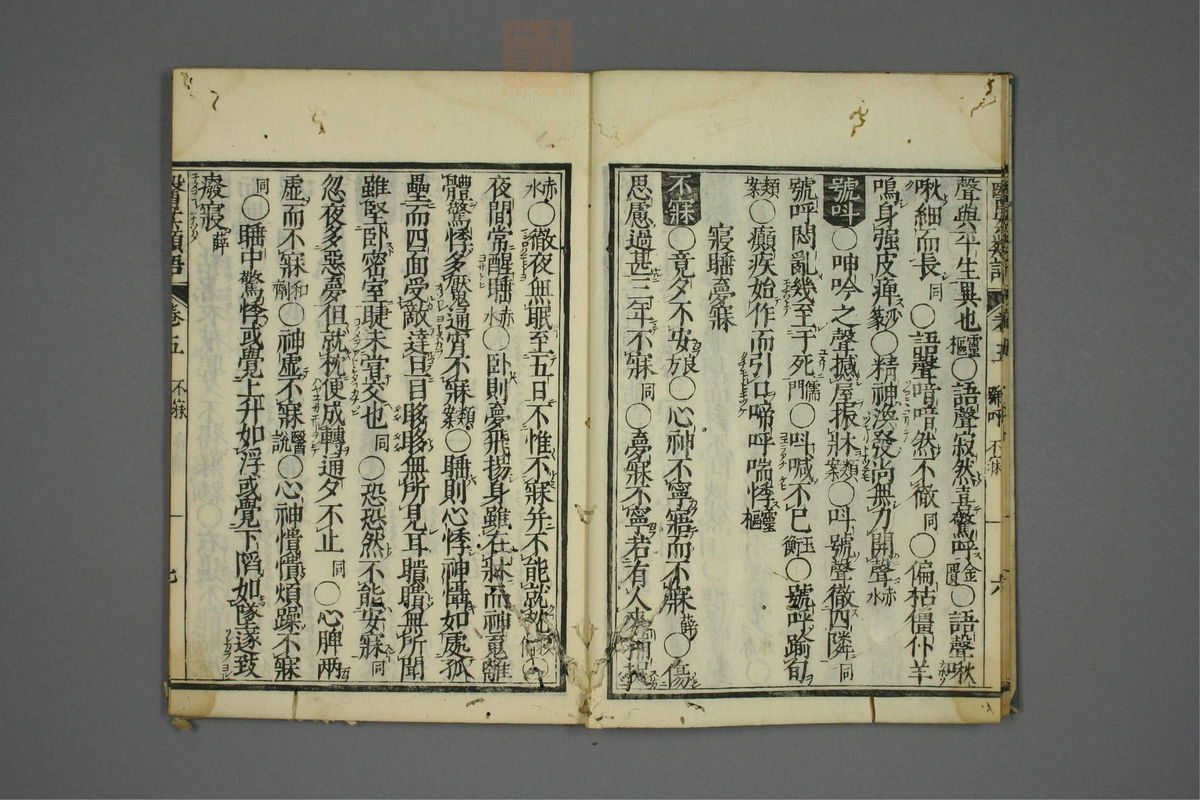 聲與平生異也靈樞○語聲寂然喜驚呼金匱○語聲啾
啾細而長同○語聲喑喑然不徹同○偏枯僵仆羊
鳴身強皮痺篆○精神渙發尚無力開聲赤水
號呌○呻吟之聲撼屋振牀類案○呌號聲徹四隣同
號呼悶亂幾至于死儒門○呌喊不已玉衡○號呼踰旬
類案○癲疾始作而引口啼呼喘悸靈樞
寢睡夢寐
不寐○竟夕不安良方○心神不寧寤而不寐薛○傷
思慮過甚三年不寐同○夢寐不寧若有人來
赤水○徹夜無眠至五日不惟不寐并不能就
夜間常醒睡赤水○臥則夢飛揚身雖在牀而神魂離
體驚悸多魘通宵不寐類案○睡則心悸神懾如處孤
壘而四面受敵達旦目眵眵無所見耳聵聵無所聞
雖堅臥密室睫未嘗交也同○恐恐然不能安寐同
忽夜多惡夢但就枕便成轉通夕不止同○心脾兩
虛而不寐和劑○神虛不寐醫說○心神憒憒煩躁不寐
同○睡中驚悸或覺上升如浮或覺下陷如墜遂致
廢寢薛
醫學類語 卷五 不寐 七
號呼 不寐 六